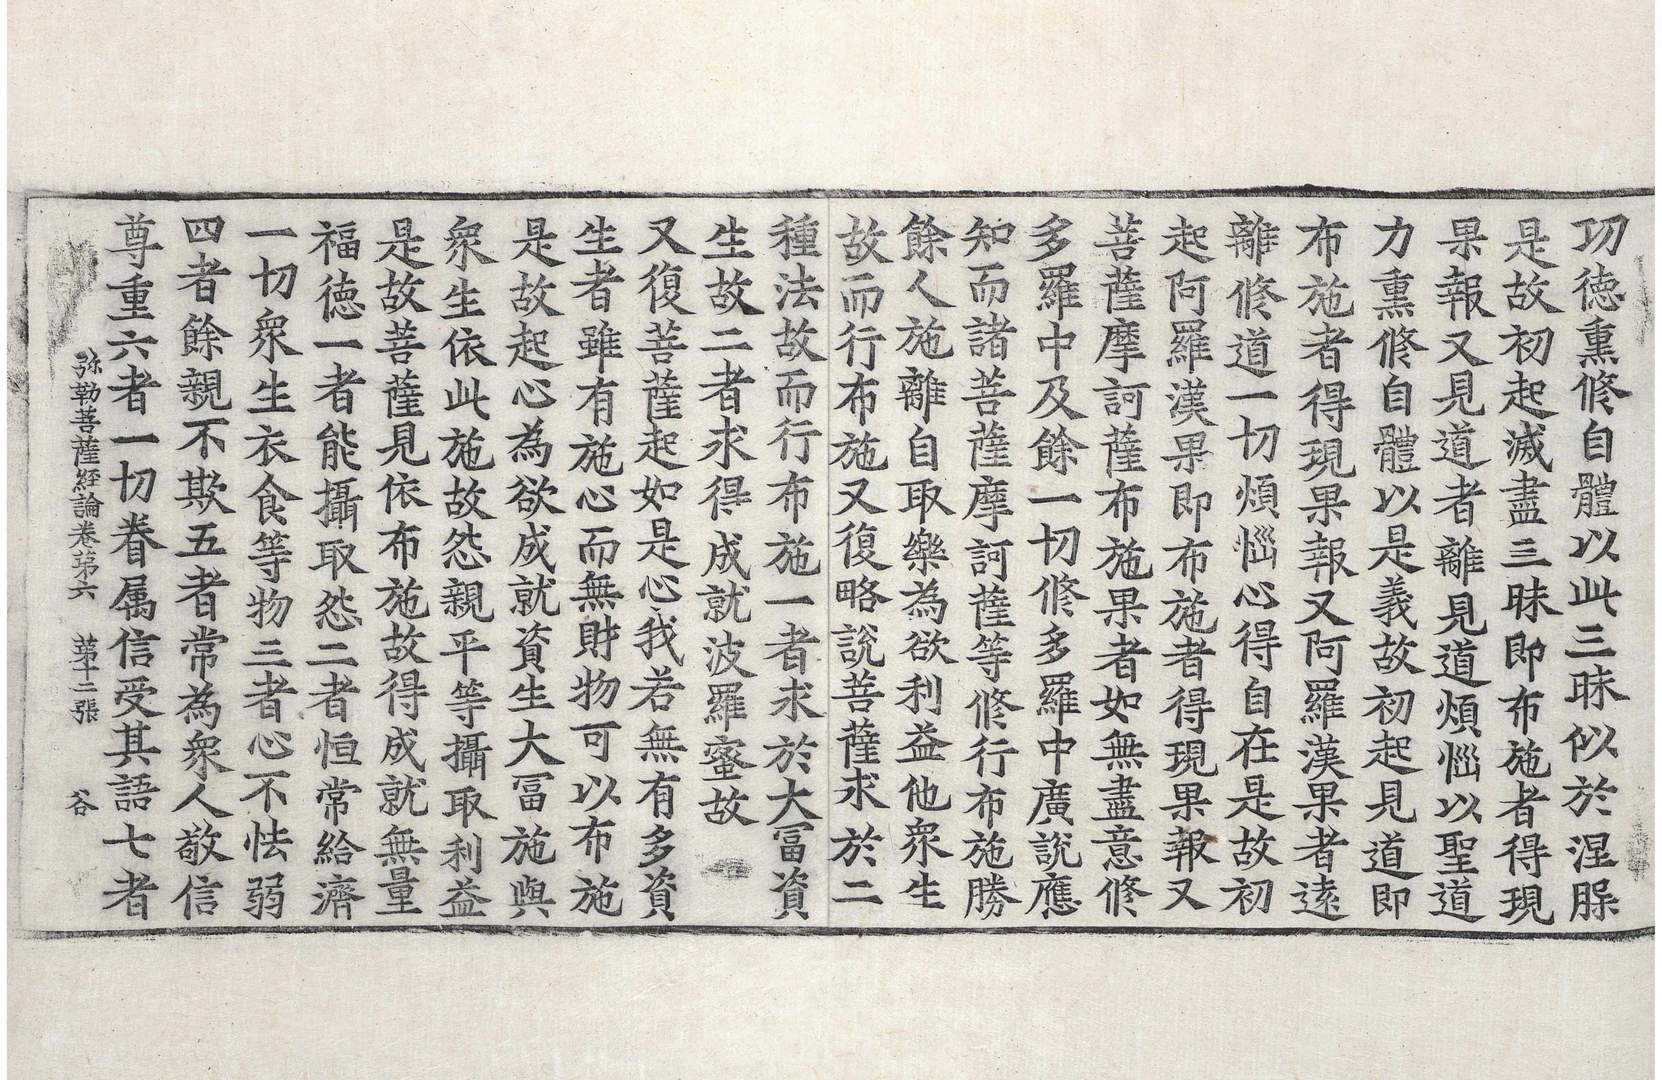 功德熏修自體以此三昧似於涅𣎴
是故初起滅盡三昧即布施者得現
果報又見道者離見道煩惱以聖道
力熏修自體以是義故初起見道即
布施者得現果報又阿羅漢果者遠
離修道一切煩惱心得自在是故初
起阿羅漢果即布施者得現果報又
菩薩摩訶薩布施果者如無盡意修
多羅中及餘一切修多羅中廣說應
知而諸菩薩摩訶薩等修行布施勝
餘人施離自取樂為欲利益他眾生
故而行布施又復略說菩薩求於二
種法故而行布施一者求於大冨資
生故二者求得成就波羅蜜故
又復菩薩起如是心我若無有多資
生者雖有施心而無財物可以布施
是故起心為欲成就資生大冨施與
眾生依此施故怨親平等攝取利益
是故菩薩見依布施故得成就無量
福德一者能攝取怨二者恒常給濟
一切眾生衣食等物三者心不怯弱
四者餘親不欺五者常為眾人敬信
尊重六者一切眷属信受其語七者
弥勒菩薩経論卷第六 苐十二張 谷